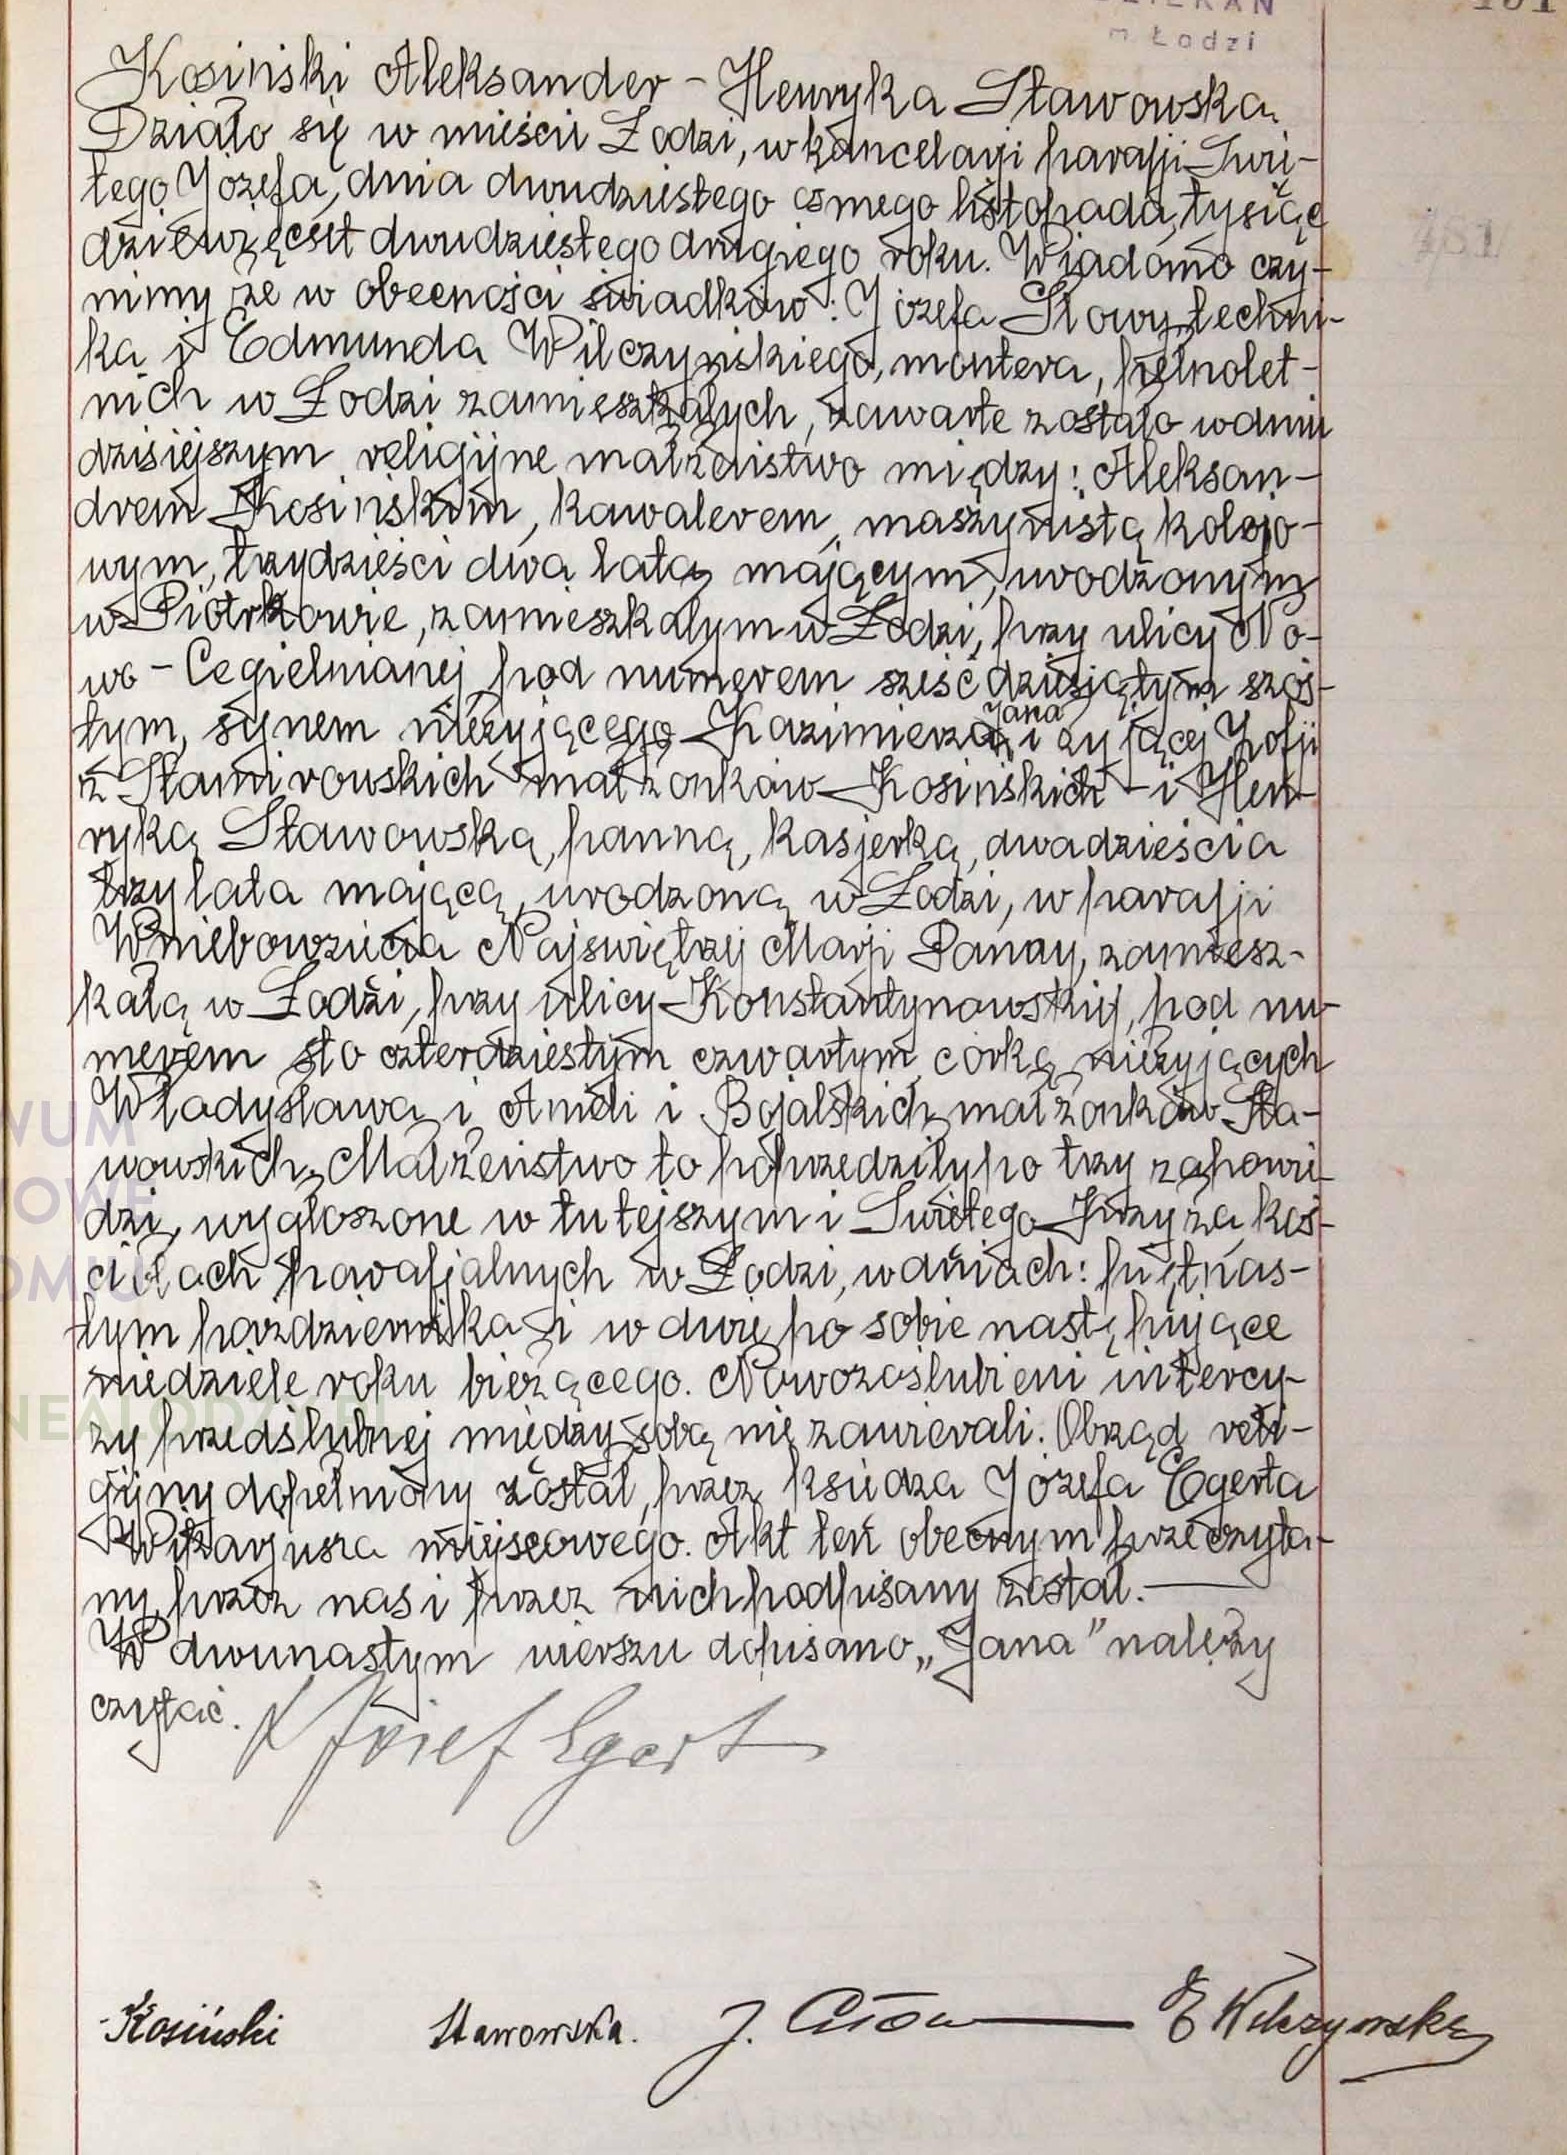 DZIEKAN
m. Łodzi
Kosiński Aleksander – Henryka Stawowska
Działo się w mieście Łodzi, w kancelarji parafji Świę-
tego Józefa, dnia dwudziestego ósmego listopada, tysiąc
dziewięćset dwudziestego drugiego roku. Wiadomo czy-
nimy że w obecności świadków: Józefa techni-
ka i Edmunda Wilczyńskiego, montera, pełnolet-
nich w Łodzi zamieszkałych, zawarte zostało w dniu
dzisiejszym religijne małżeństwo między: Aleksan-
drem Kosińskim, kawalerem, maszynistą kolejo-
wym, trzydzieści dwa lata mającym, urodzonym
w Piotrkowie, zamieszkałym w Łodzi, przy ulicy No-
wo-Cegielnianej pod numerem sześćdziesiątym szós-
tym, synem nieżyjącego Kazimierza Jana i żyjącej Zofji
z Stamirowskich małżonków Kosińskich – i Hen-
ryką Stawowską, panną, kasjerką, dwadzieścia
trzy lata mającą, urodzoną w Łodzi, w parafji
Wniebowzięcia Najświętszej Marji Panny, zamiesz-
kałą w Łodzi, przy ulicy Konstantynowskiej, pod nu-
merem sto czterdziestym czwartym, córką nieżyjących
Władysława i Anieli i Bojalskich małżonków Sta-
wowskich. Małżeństwo to poprzedziły po trzy zapowie-
dzi, wygłoszone w tutejszym i Świętego Krzyża koś-
ciołach parafjalnych w Łodzi, w dniach: piętnas-
tym października i w dwie po sobie następujące
niedziele roku bieżącego. Nowozaślubieni intercy-
zy przedślubnej między sobą nie zawierali. Obrząd reli-
gijny dopełniony został, przez księdza Józefa Egerta
Wikarjusza miejscowego. Akt ten obecnym przeczyta-
ny przez nas i przez nich podpisany został. —
W dwunastym wierszu dopisano „Jana” należy
czytać. X Józef Egert
Kosiński Stawowska. J. E Wilczyński
481
WUM
OWE
OMIU
NEALODZY.PL